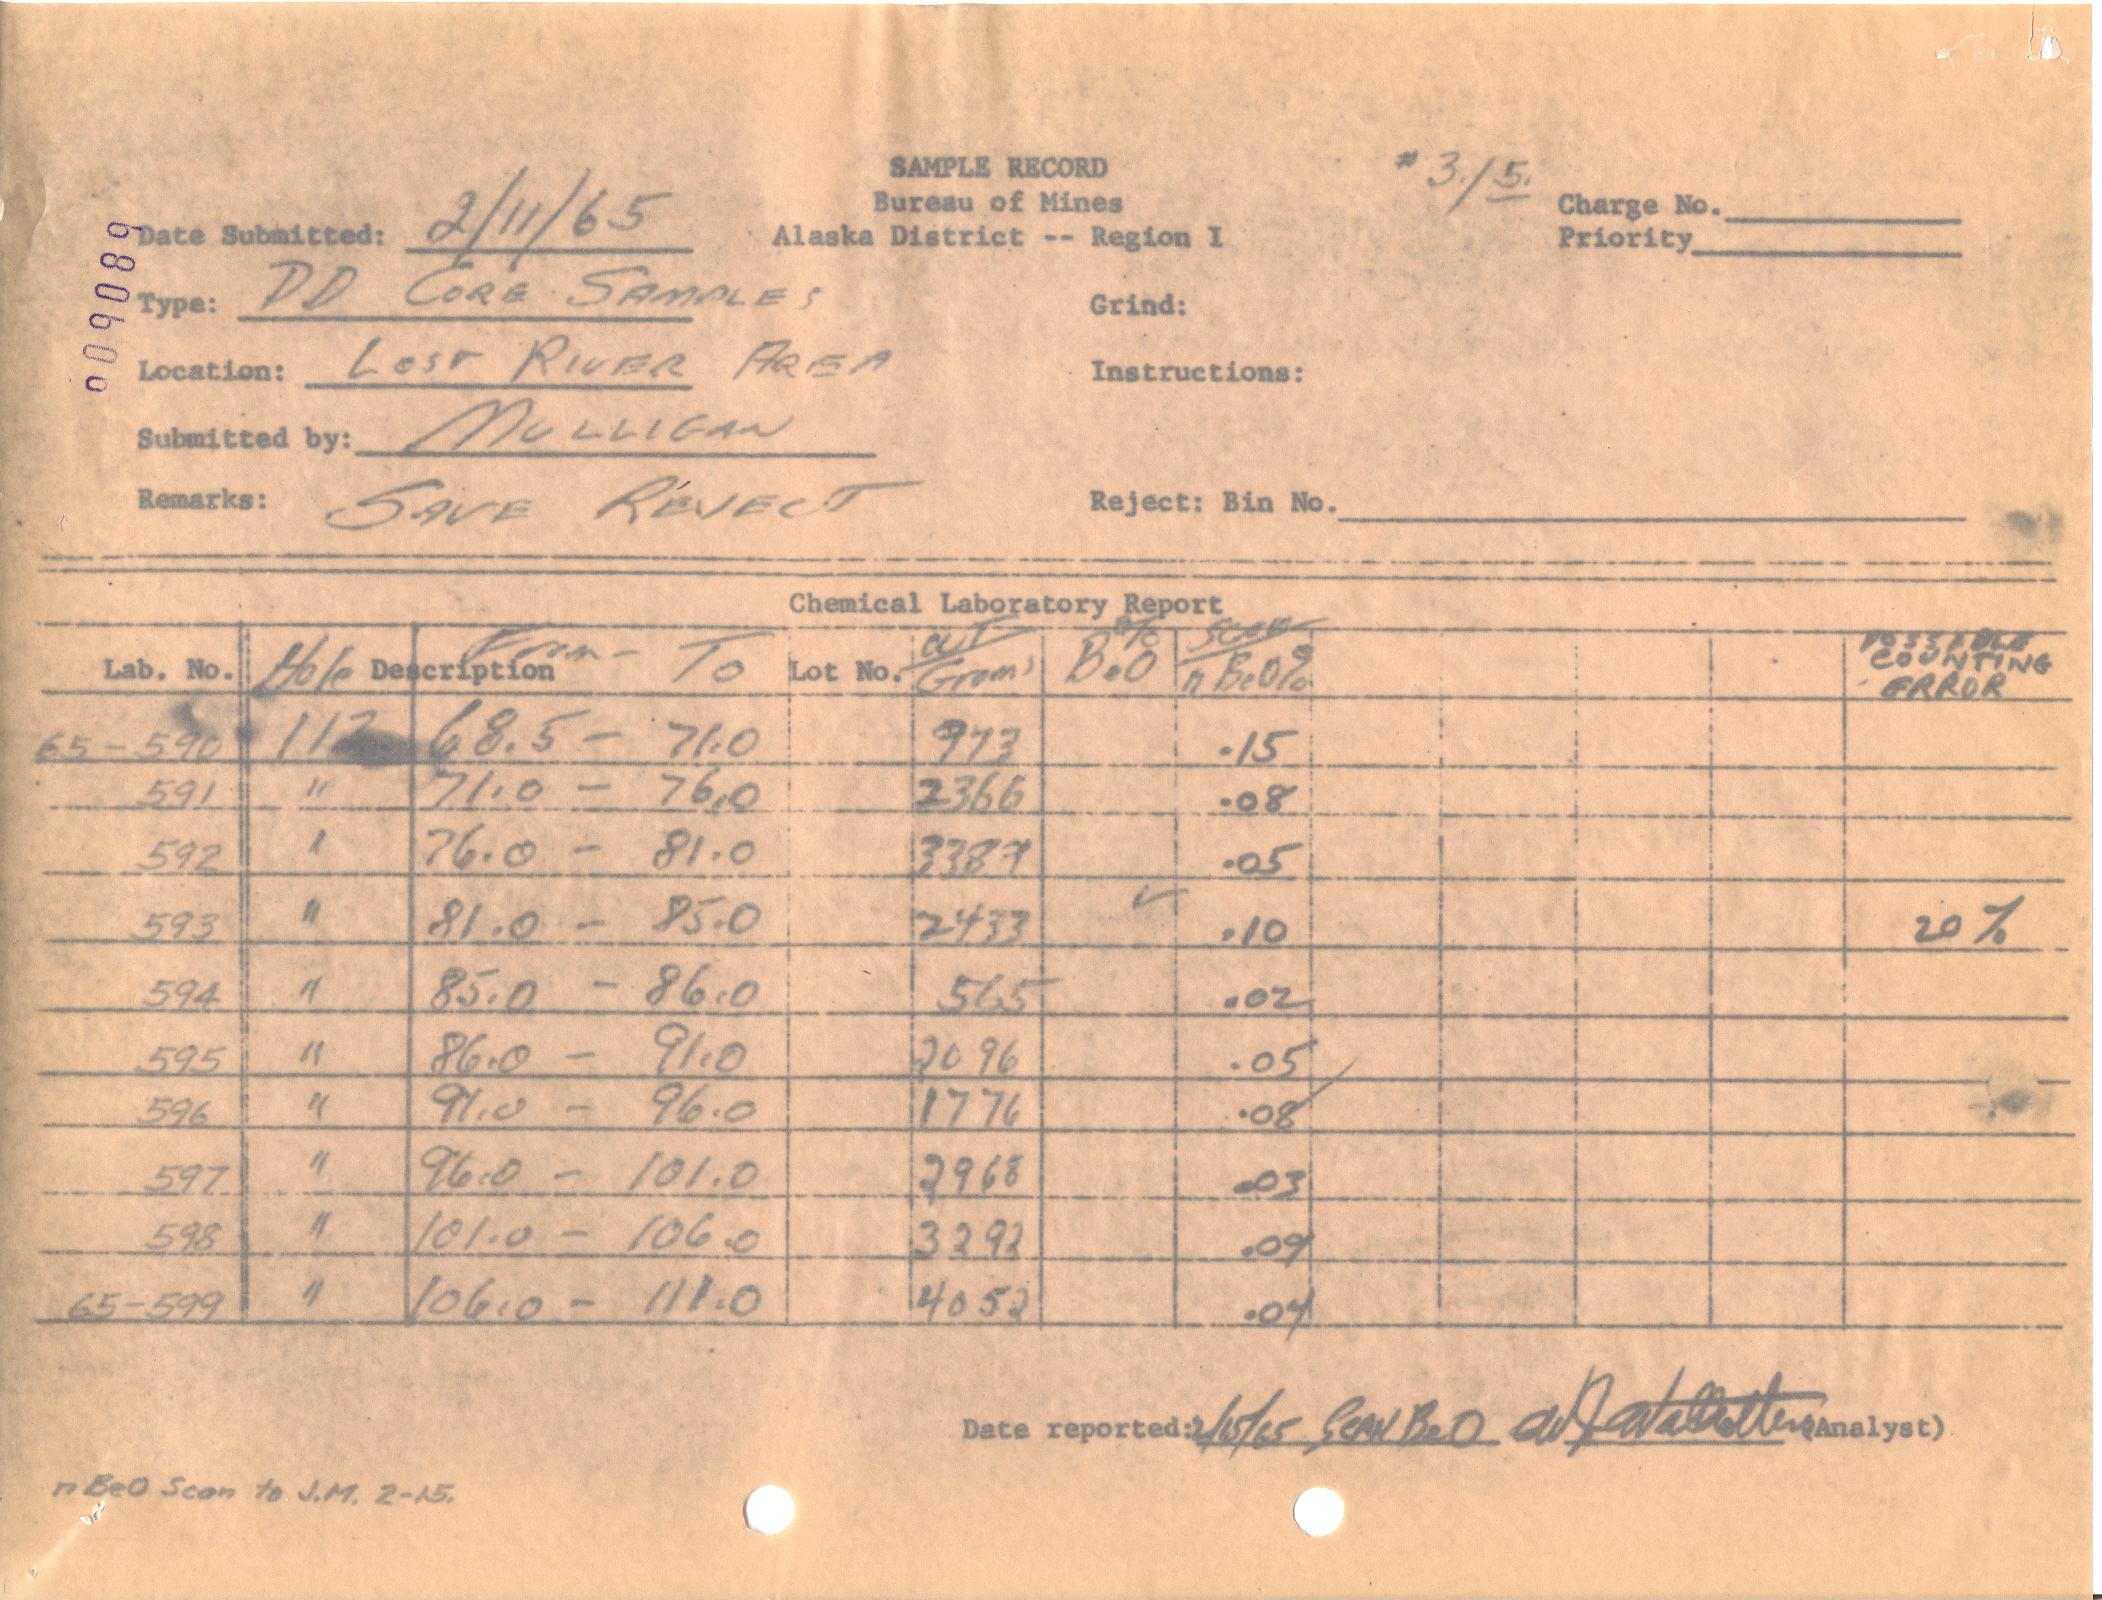 SAMPLE RECORD
Bureau of Mines
Alaska District -- Region I
# 3./5.
Charge No.
Priority
009089
Date Submitted: 2/11/65
Type: DD CORE SAMPLES
Grind:
Location: LOST RIVER AREA
Instructions:
Submitted by: MULLIGAN
Remarks: SAVE REJECT
Reject: Bin No.
Chemical Laboratory Report
Lab. No. Hole Description From - To Lot No. WT Grams % BeO Scan n BeO % POSSIBLE COUNTING ERROR
65-590 112 68.5 - 71.0 973 .15
591 " 71.0 - 76.0 2366 .08
592 " 76.0 - 81.0 3387 .05
593 " 81.0 - 85.0 2433 ✓ .10 20%
594 " 85.0 - 86.0 565 .02
595 " 86.0 - 91.0 2096 .05
596 " 91.0 - 96.0 1776 .08
597 " 96.0 - 101.0 2968 .03
598 " 101.0 - 106.0 3292 .09
65-599 " 106.0 - 111.0 4052 .04
Date reported: 2/15/65 SCAN BeO (Analyst)
n BeO Scan to J.M. 2-15.